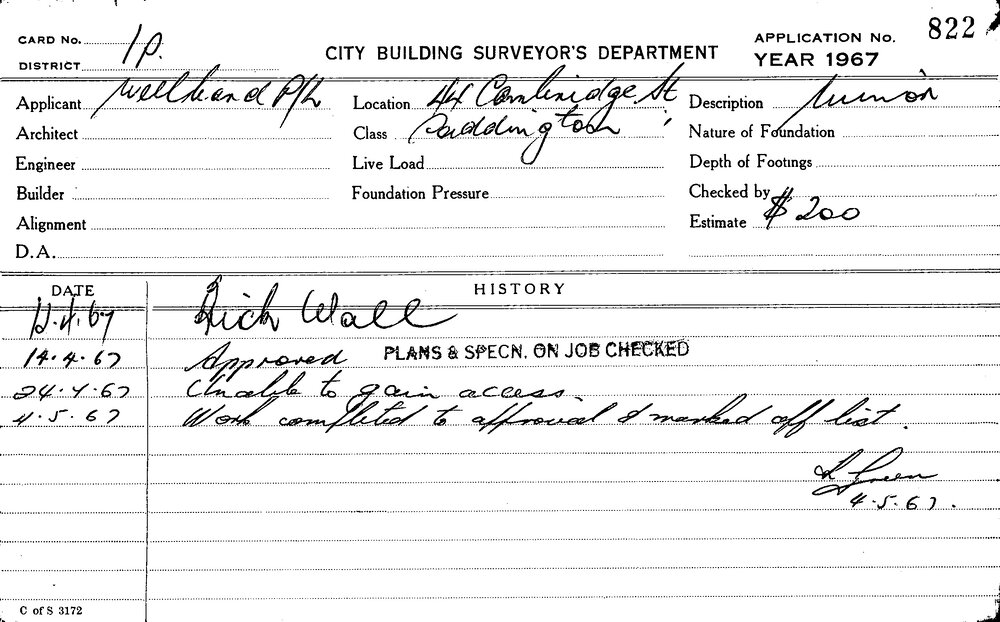 CARD No. 1p.
DISTRICT
CITY BUILDING SURVEYOR'S DEPARTMENT
APPLICATION No. 822
YEAR 1967
Applicant P/L
Location 44 Cambridge St
Description minor
Architect
Class Paddington
Nature of Foundation
Engineer
Live Load
Depth of Footings
Builder
Foundation Pressure
Checked by
Alignment
Estimate $ 200
D.A.
DATE
HISTORY
12.4.67
14.4.67 Approved PLANS & SPECN. ON JOB CHECKED
24.4.67 Unable to gain access.
4.5.67 Work completed to approval & marked off list.
Green
4.5.67.
C of S 3172